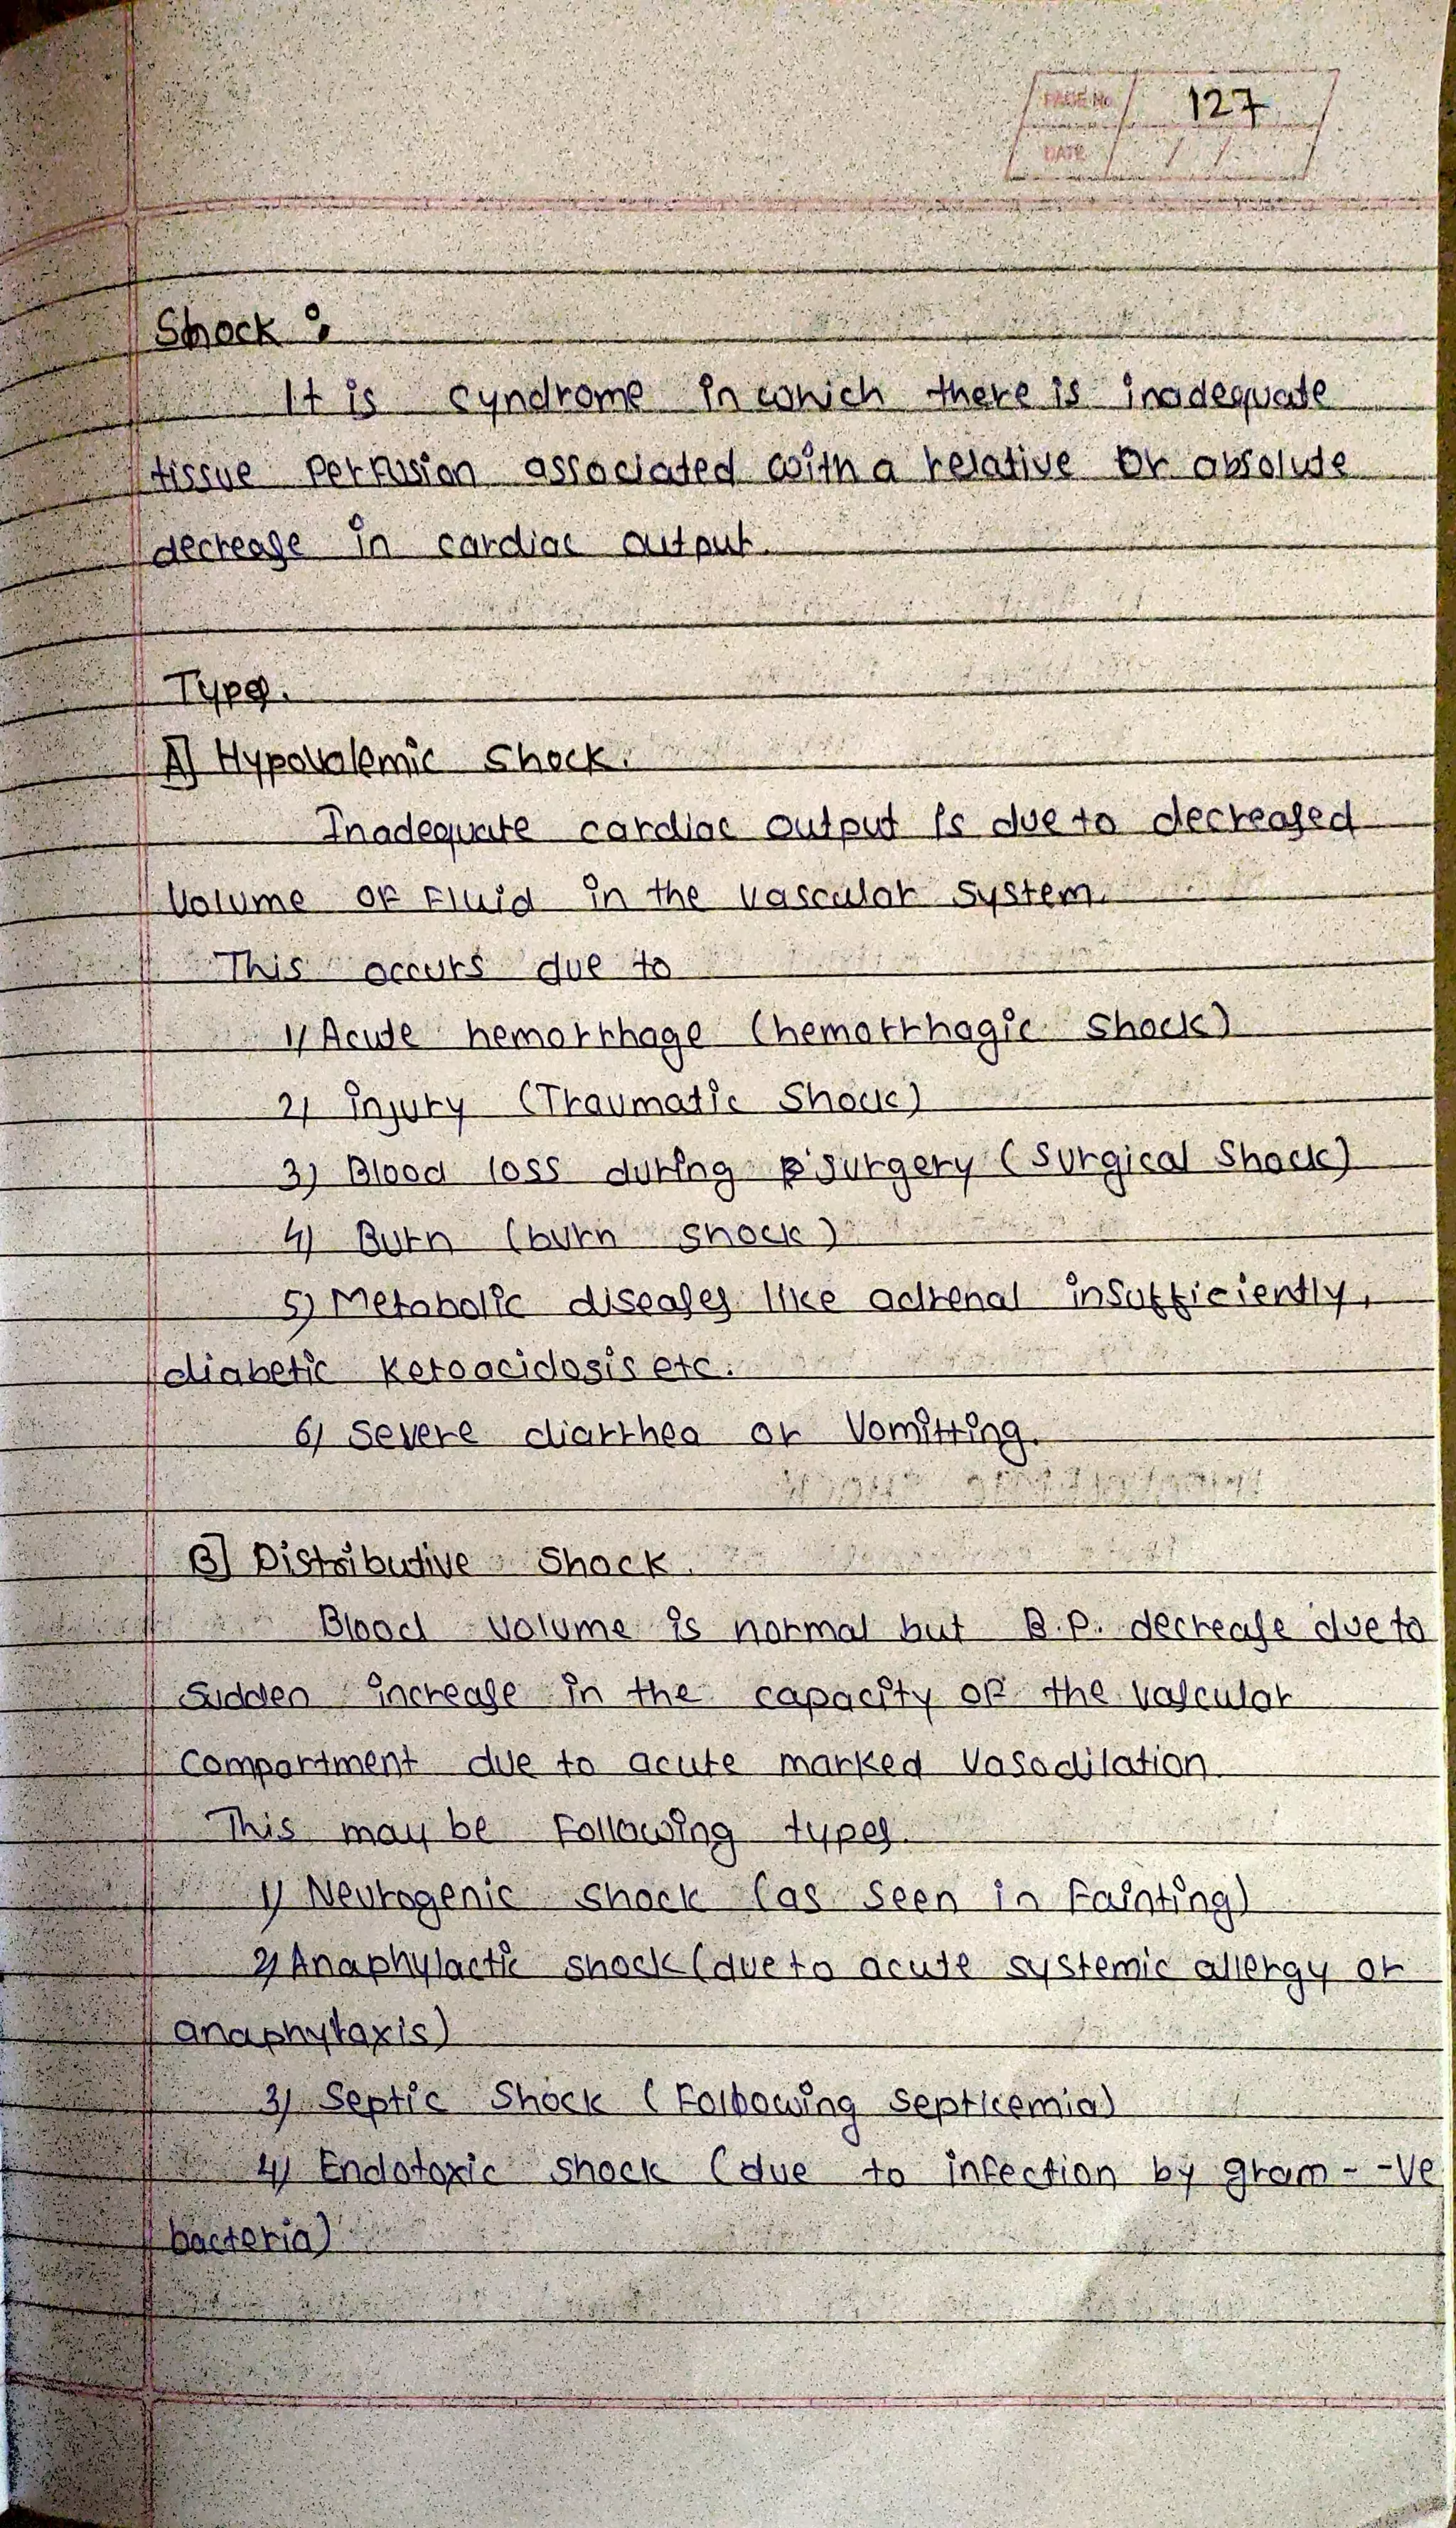 PAGE No. 127
DATE / /
Shock :
It is syndrome in which there is inadequate
tissue perfusion associated with a relative or absolute
decrease in cardiac output.
Types.
A] Hypovolemic Shock.
Inadequate cardiac output is due to decreased
volume of fluid in the vascular system.
This occurs due to
1) Acute hemorrhage (hemorrhagic shock)
2) injury (Traumatic Shock)
3) Blood loss during surgery (Surgical Shock)
4) Burn (burn shock)
5) Metabolic diseases like adrenal insufficiently,
diabetic ketoacidosis etc.
6) severe diarrhea or Vomitting.
B] Distributive Shock.
Blood volume is normal but B.P. decrease due to
sudden increase in the capacity of the vascular
compartment due to acute marked vasodilation
This may be following types.
1) Neurogenic shock (as seen in Fainting)
2) Anaphylactic shock (due to acute systemic allergy or
anaphytaxis)
3) Septic Shock (Follbowing septicemia)
4) Endotoxic shock (due to infection by gram - -ve
bacteria)